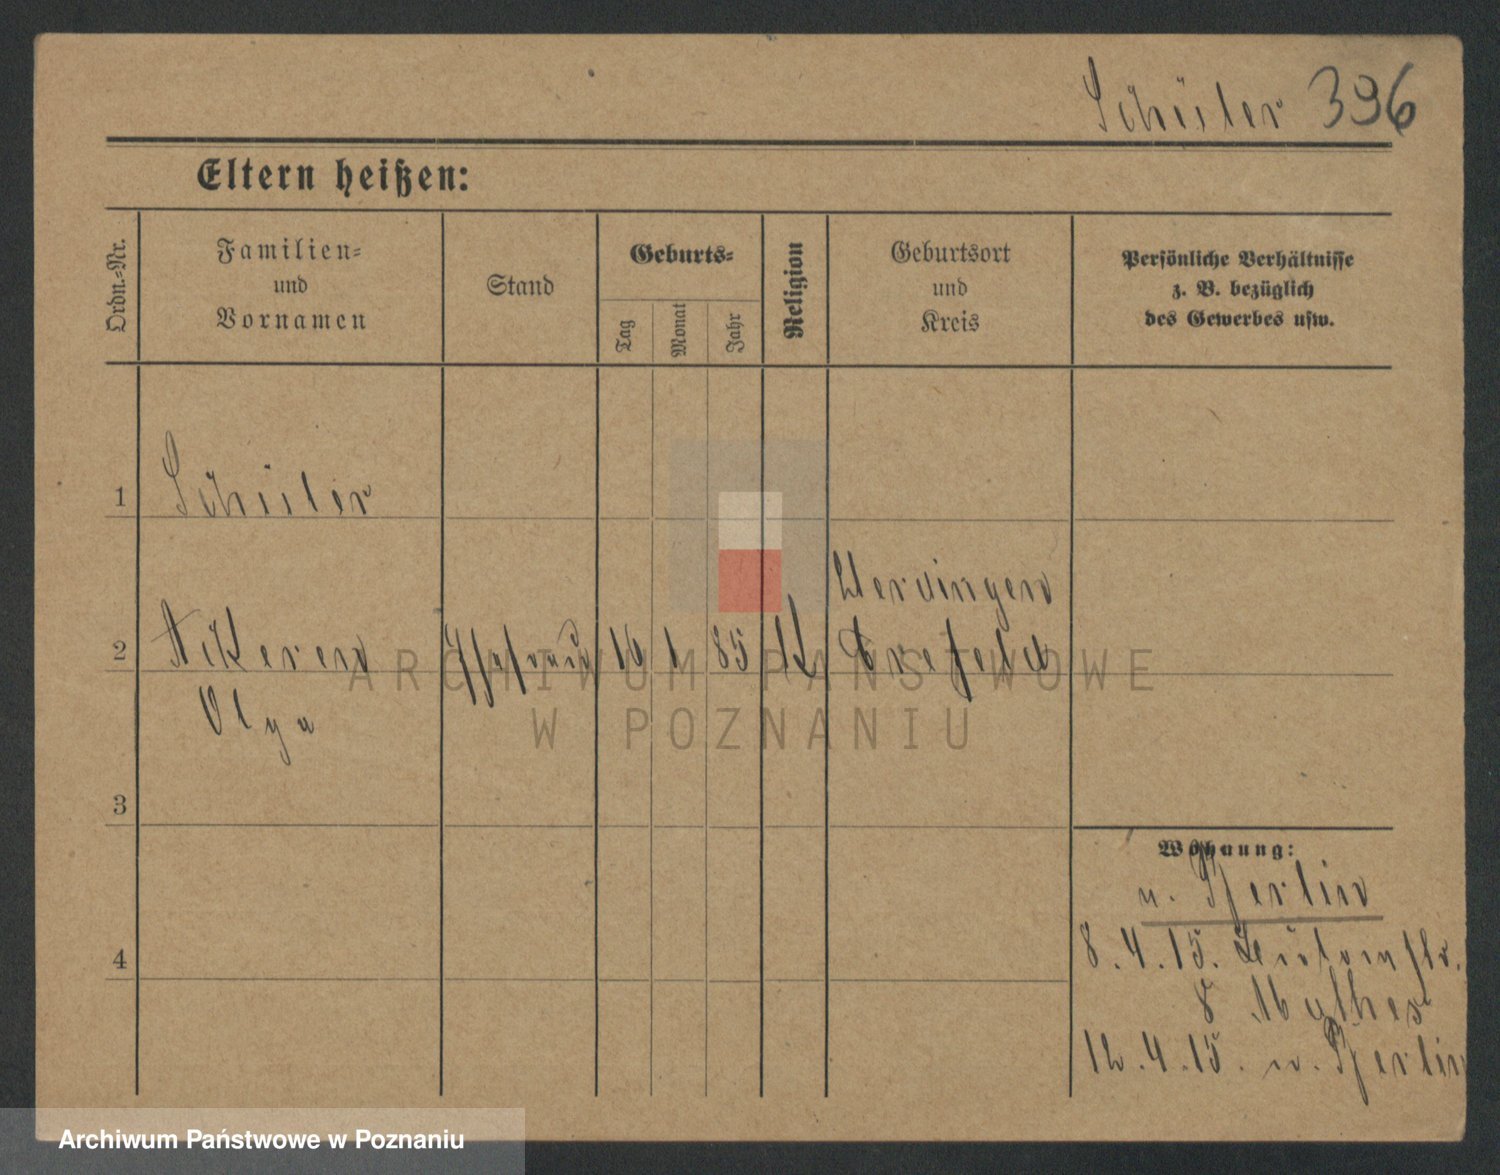 Schüler 396
Eltern heißen:
Ordn.-Nr.
Familien- und Vornamen
Stand
Geburts-
Tag
Monat
Jahr
Religion
Geburtsort und Kreis
Persönliche Verhältnisse
z. B. bezüglich
des Gewerbes usw.
1 Schüler
2 Ehefrau 16 1 85 K Crefeld
Olga
3
4
Wohnung:
n. Berlin
8.4.15.
8
12.4.15. n. Berlin
ARCHIWUM PAŃSTWOWE
W POZNANIU
Archiwum Państwowe w Poznaniu